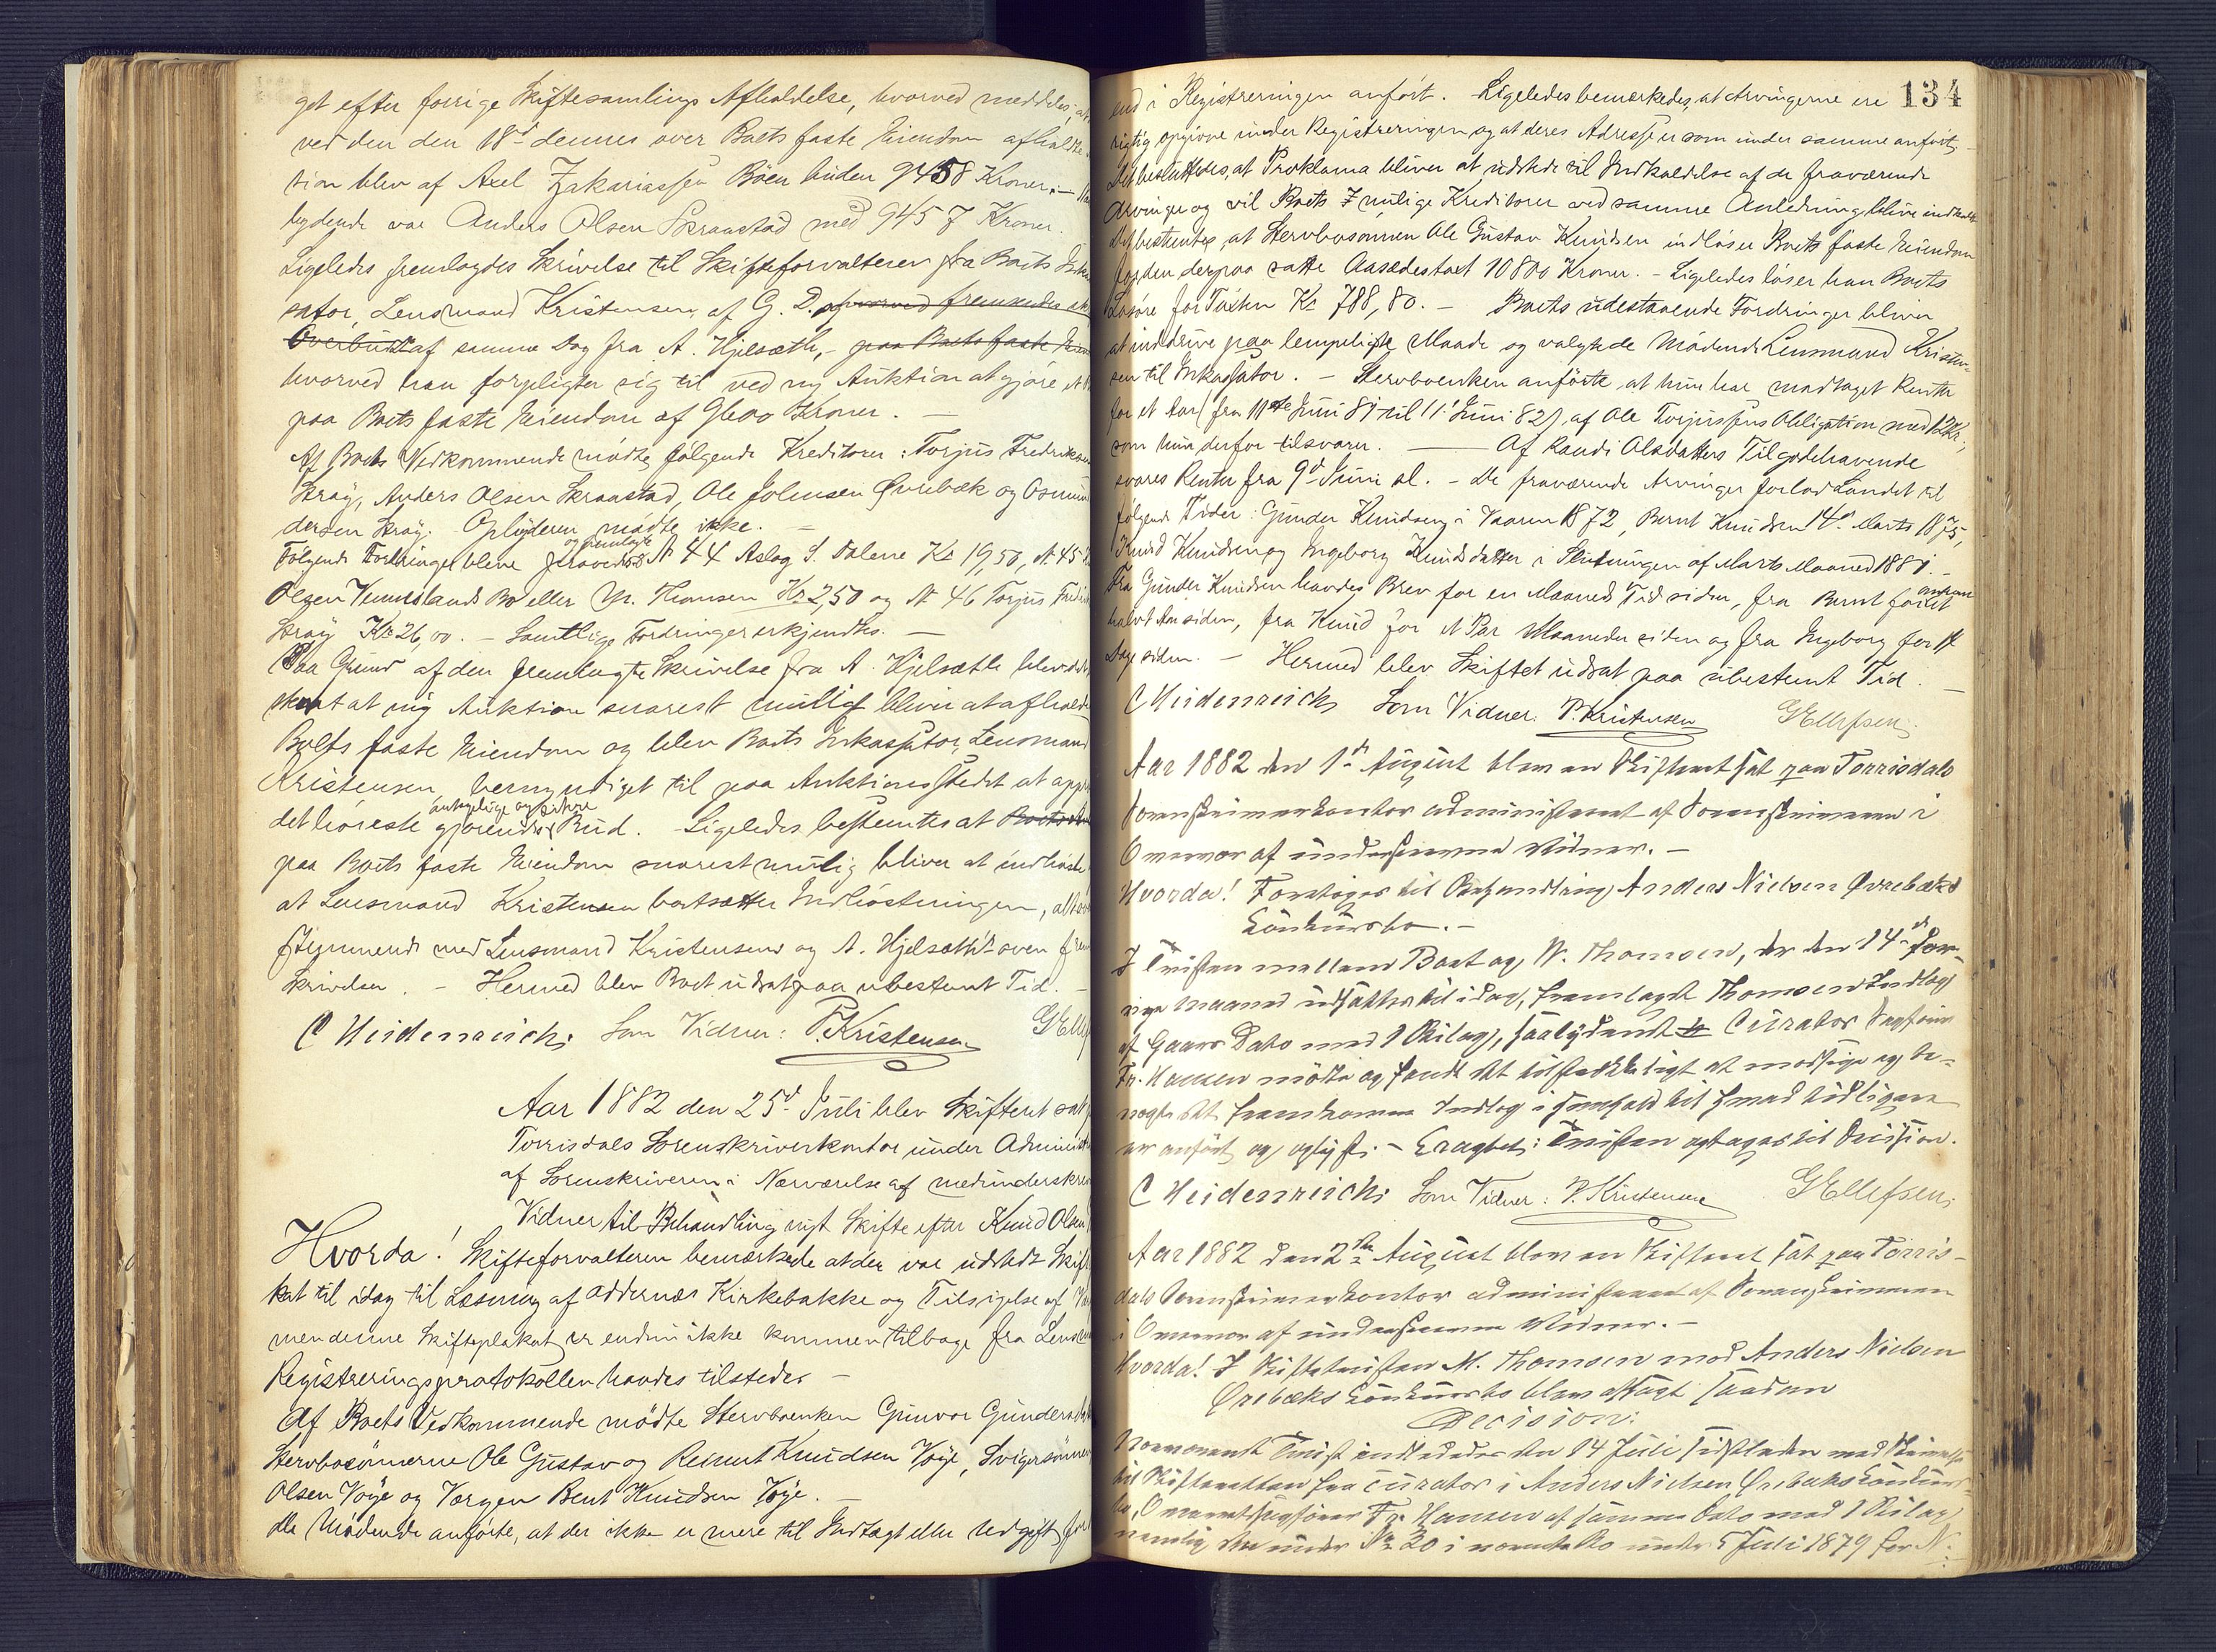 get efter forrige Skiftesamlings Afholdelse, hvorved meddeles, at
ved den den 18d dennes over Boets faste Eiendom afholdte
tion blev af Axel Zakariassen Böen buden 9458 Kroner. —
bydende var Anders Olsen Skraastad med 9457 Kroner.
Ligeledes fremlagdes Skrivelse til Skifteforvalteren fra Boets Inka
sator, Lensmand Kristensen, af G. D. og hvorved fremsendes
Overbud af samme Dag fra A. Hjelsæth, - paa Boets faste
hvorved han forpligter sig til ved ny Auktion at gjöre et
paa Boets faste Eiendom af 9600 Kroner. —
Af Boets Vedkommende mødte følgende Kreditorer: Torjus Fredriksen
Strøy, Anders Olsen Skraastad, Ole Johnsen Øvrebæk og
dersen Strøy. Opbyderen mödte ikke. —
Følgende Fordringer bleve og fremlagte N 44 Aslag S. Dalene Kr 19,50, N 45
Olsen Vennesland Bo eller W. Thomsen Kr 2,50 og N 46 Torjus
Strøy Kr 26,00. — Samtlige Fordringer erkjendtes. —
Paa Grund af den fremlagte Skrivelse fra A. Hjelsæth blev det
stemt at ny Auktion snarest muligt bliver at afholde
Boets faste Eiendom og blev Boets Inkassator, Lensmand
Kristensen, bemyndiget til paa Auktionsstedet at app
det høieste gjørendes antagelige og sikre Bud. - Ligeledes bestemtes at
paa Boets faste Eiendom snarest mulig bliver at indhøste
at Lensmand Kristensen besætter Indhøstningen, alt
stemmende med Lensmand Kristensens og A. Hjelsæths oven
Skrivelser. - Hermed blev Boet udsat paa ubestemt Tid. -
C Heidenreich Som Vidner: P. Kristensen G Ell
Aar 1882 den 25d Juli blev Skifteret sat
Torrisdals Sorenskriverkontor under Administ
af Sorenskriveren i Nærværelse af medunderskre
Vidner til Behandling nyt Skifte efter Knud Olsen
Hvorda! Skifteforvalteren bemærkede at der var udstedt Skift
kat til idag til Læsning af Oddernæs Kirkebakke og Tilsigelse af
men denne Skifteplakat er endnu ikke kommen tilbage fra Lensm
Registreringsprotokollen havdes tilstede. —
Af Boets Vedkommende mödte Stervboenken Gunvor Gunders
Stervbosönnerne Ole Gustav og Reinert Knudsen Vøye, Svigersönnen
Olsen Vøye og Værgen Bent Knudsen Vøye. —
de Mødende anførte, at der ikke er mere til Indtægt eller Udgift
134
end i Registreringen anført. Ligeledes bemærkedes, at Arvingerne ere
rigtig opgivne under Registreringen og at deres Adresse er som under samme anført.
Det besluttedes, at Proklama bliver at udstede til Indkaldelse af de fraværende
Arvinger og vil Boets mulige Kreditorer ved samme Anledning blive indkaldt.
Det bestemtes, at Stervbosønnen Ole Gustav Knudsen indløser Boets faste Eiendom
for den derpaa satte Aasædestaxt 10800 Kroner. - Ligeledes løser han Boets
Løsøre for Taxten Kr 788,80. - Boets udestaaende Fordringer bliver
at inddrive paa lempeligste Maade og valgte de Mødende Lensmand Kristen-
sen til Inkassator. - Stervboenken anførte at hun har modtaget Renter
for et Aar (fra 11te Juni 81 til 11' Juni 82) af Ole Torjussens Obligation med 12 Kr.,
som hun derfor tilsvarer. — Af Randi Olsdatters Tilgodehavende
svares Renter fra 9d Juni sl. - De fraværende Arvinger forlod Landet til
følgende Tider: Gunder Knudsen i Vaaren 1872, Bernt Knudsen 14d Marts 1875,
Knud Knudsen og Ingeborg Knudsdatter i Slutningen af Marts Maaned 1881. -
Fra Gunder Knudsen havdes Brev for en Maaneds Tid siden, fra Bernt for et
halvt Aar siden, fra Knud for et Par Maaneder siden og fra Ingeborg for 14
Dage siden. - Hermed blev Skiftet udsat paa ubestemt Tid. —
C Heidenreich Som Vidner: P. Kristensen G Ellefsen
Aar 1882 den 1ste August blev en Skifteret sat paa Torrisdals
Sorenskriverkontor administreret af Sorenskriveren i
Overvær af underskrevne Vidner. —
Hvorda! Foretoges til Behandling Anders Nielsen Øvrebæks
Konkursbo. —
I Tvisten mellem Boet og W. Thomsen, der den 14de for-
rige Maaned udsattes til idag, fremlagde Thomsen Indlæg
af Gaars Dato med 1 Bilag, saalydende Curator Sagfører
Fr. Hansen mødte og fandt det tilstrækkeligt at modsige og be-
nægte det fremkomne Indlæg i Henhold til hvad tidligere
er anført og oplyst. - Eragtet: Tvisten optages til Decision.
C Heidenreich Som Vidner: P. Kristensen G Ellefsen
Aar 1882 den 2den August blev en Skifteret sat paa Torris-
dals Sorenskriverkontor administreret af Sorenskriveren
i Overvær af underskrevne Vidner. —
Hvorda! I Skiftetvisten W. Thomsen mod Anders Nielsen
Øvrebæks Konkursbo blev afsagt saadan
Decision:
Nærværende Tvist indlededes den 14 Juli sidstleden med Skrivelse
til Skifteretten fra Curator i Anders Nielsen Øvrebæks Konkurs-
bo, Overretssagfører Fr. Hansen af samme Dato med 1 Bilag
nemlig den under No 30 i nævnte Bo under 5 Juli 1879 for